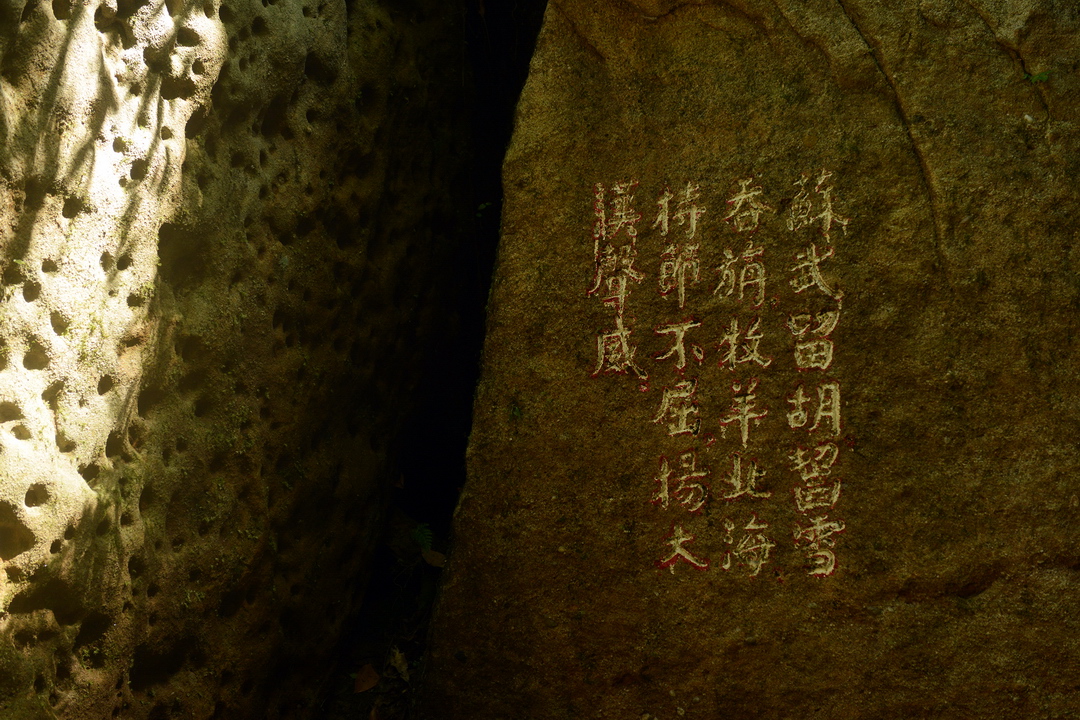 蘇武留胡齧雪
吞旃牧羊北海
持節不屈揚大
漢聲威